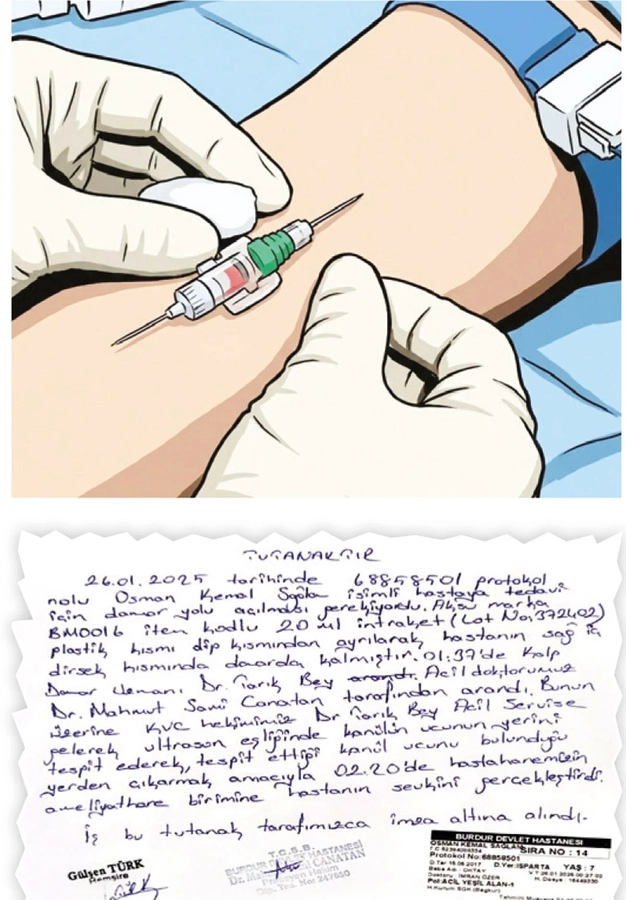 TUTANAKTIR
26.01.2025 tarihinde 68858501 protokol
nolu Osman Kemal Sağlam isimli hastaya tedavi
için damar yolu açılması gerekiyordu. Aksu marka
BM0016 iten kodlu 20 ml intraket (Lot No: 372402)
plastik kısmı dip kısmından ayrılarak hastanın sağ iç
dirsek kısmında damarda kalmıştır. 01:37'de Kalp
Damar Uzmanı Dr. Tarık Bey arandı. Acil doktorumuz
Dr. Mahmut Sami Canatan tarafından arandı. Bunun
üzerine KVC hekimimiz Dr Tarık Bey Acil Servise
gelerek ultrason eşliğinde kanülün ucunun yerini
tespit ederek, tespit ettiği kanül ucunu bulunduğu
yerden çıkarmak amacıyla 02.20'de hastahanemizin
ameliyathare birimine hastanın sevkini gerçekleştirdi.
İş bu tutanak tarafımızca imza altına alındı.
Gülşen TÜRK
Hemşire
T.C.S.B.
BURDUR DEVLET HASTANESİ
CANATAN
Dip. Tes. No: 247650
BURDUR DEVLET HASTANESİ
OSMAN KEMAL SAĞLAM SIRA NO : 14
Protokol No:68858501
D.Yer:ISPARTA YAŞ : 7
Baba Adı : OKTAY
Doktoru : İMRAN ÖZER
Pol:ACİL YEŞİL ALAN-1
H.Kurum:SGK